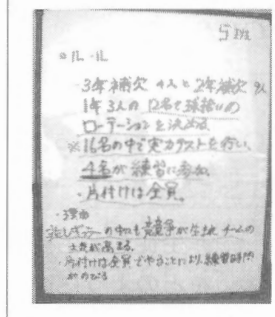 5 班
◎ ルール
・3年補欠 4人と2年補欠 9人
1年3人の 12名で球拾いの
ローテーションを決める
※16名の中で実力テストを行い、
4名が練習に参加。
・片付けは全員。
・理由
非レギュラーの中にも競争が生まれ チームの
士気が高まる。
・片付けは全員でやることにより、練習時間
がのびる